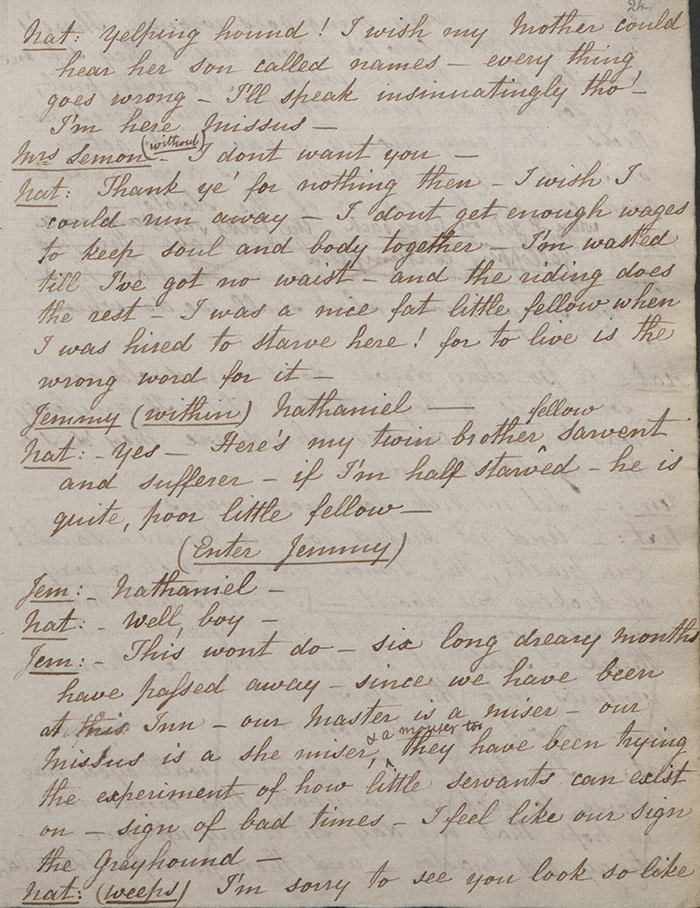 24
Nat: Yelping hound! I wish my Mother could
hear her son called names - every thing
goes wrong - I'll speak insinuatingly tho' -
I'm here Missus -
Mrs Lemon (without) - I dont want you -
Nat: Thank ye' for nothing then - I wish I
could run away - I dont get enough wages
to keep soul and body together - I'm wasted
till I've got no waist - and the riding does
the rest - I was a nice fat little fellow when
I was hired to starve here! for to live is the
wrong word for it -
Jemmy (within) Nathaniel -
fellow
Nat: - Yes - Here's my twin brother ^ sarvent
and sufferer - if I'm half starvêd - he is
quite, poor little fellow -
(Enter Jemmy)
Jem: - Nathaniel -
Nat: - Well, boy -
Jem: - This wont do - six long dreary months
have paſsed away - since we have been
at this Inn - our Master is a miser - our
& a mouser too
Missus is a she miser, ^ they have been trying
the experiment of how little servants can exist
on - sign of bad times - I feel like our sign
the Greyhound -
Nat: (weeps) I'm sorry to see you look so like